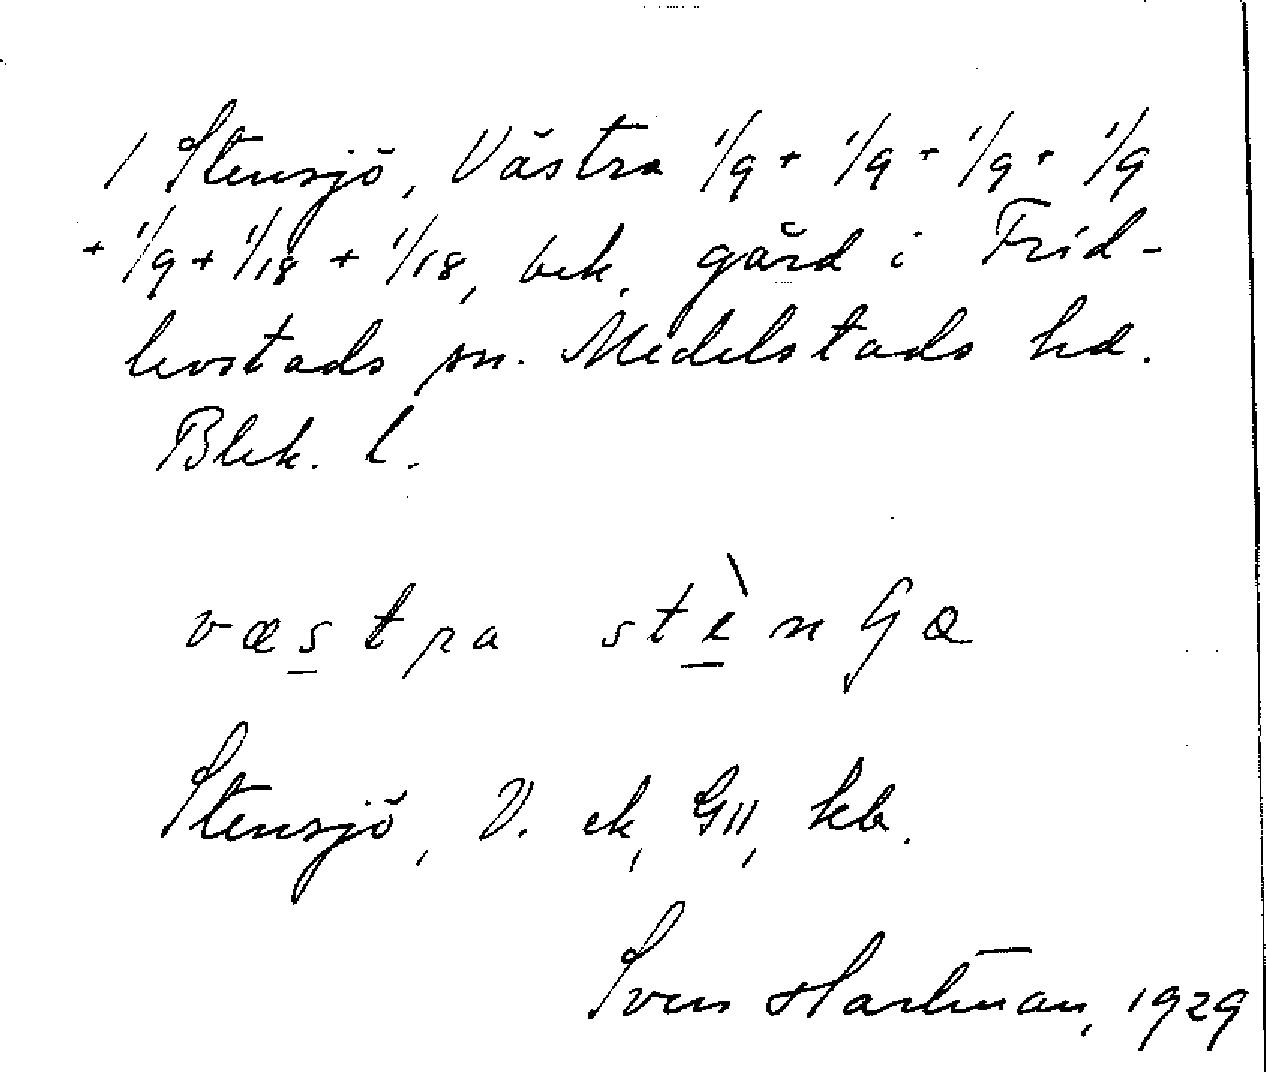 1 Stensjö, Västra 1/9 + 1/9 + 1/9 + 1/9
+ 1/9 + 1/18 + 1/18, bek. gård i Frid-
levstads sn. Medelstads hd.
Blek. l.
væs̲tra stè̲nGa
Stensjö, V. ek, GII, kb.
Sven Hartman, 1929